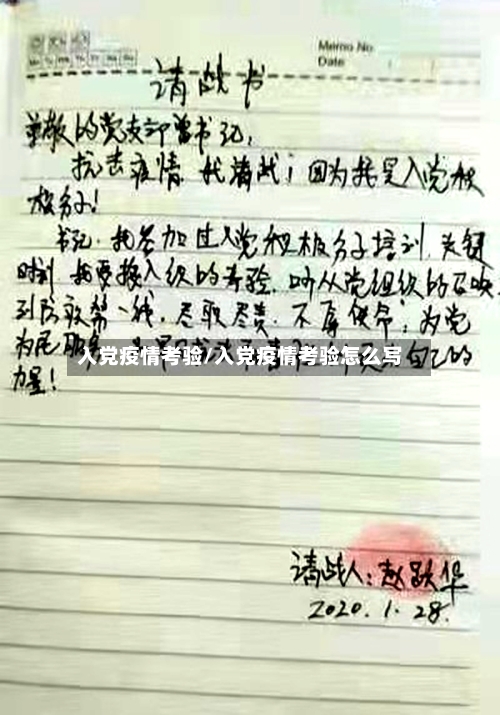 Memo No.
Date
请战书
尊敬的党支部曾书记:
抗击疫情,我请战!因为我是入党积
极分子!
书记,我参加过入党积极分子培训,关键
时刻,我要接入组织的考验,听从党组织的召唤,
到防疫第一线,尽职尽责,不辱使命,为党
为
入党疫情考验/入党疫情考验怎么写
自己的
力量!
请战人:赵跃华
2020.1.28.